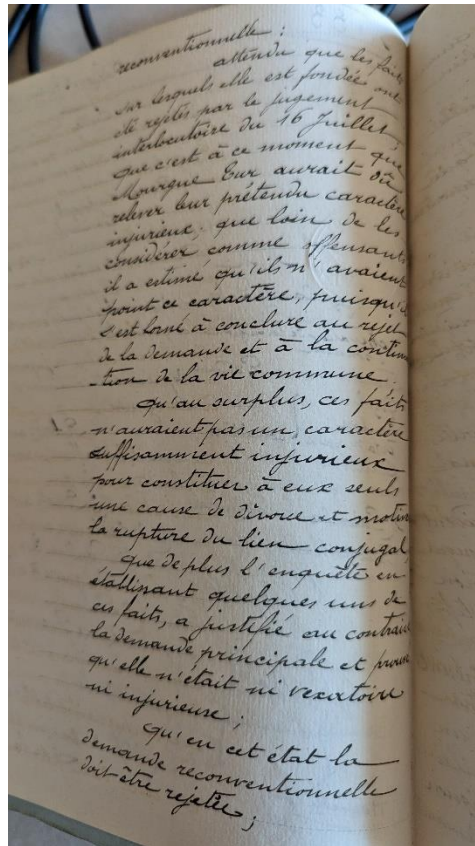 reconventionnelle ;
attendu que les faits
sur lesquels elle est fondée ont
été rejetés par le jugement
interlocutoire du 16 Juillet,
que c'est à ce moment que
Mourgue leur aurait dû
relever leur prétendu caractère
injurieux ; que loin de les
considérer comme offensants
il a estimé qu'ils n'avaient
point ce caractère, puisqu'il
s'est borné à conclure au rejet
de la demande et à la continua
-tion de la vie commune.
qu'au surplus, ces faits
n'auraient pas un caractère
suffisamment injurieux
pour constituer à eux seuls
une cause de divorce et motiver
la rupture du lien conjugal,
que de plus l'enquête en
établissant quelques uns de
ces faits, a justifié au contraire
la demande principale et prouvé
qu'elle n'était ni vexatoire
ni injurieuse ;
qu'en cet état la
demande reconventionnelle
doit être rejetée ;